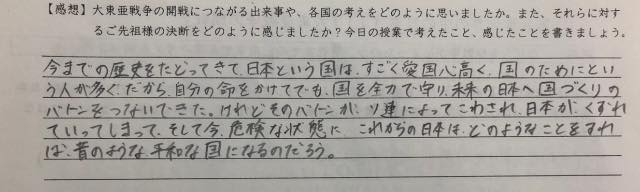 【感想】大東亜戦争の開戦につながる出来事や、各国の考えをどのように思いましたか。また、それらに対す
るご先祖様の決断をどのように感じましたか？今日の授業で考えたこと、感じたことを書きましょう。
今までの歴史をたどってきて、日本という国は、すごく愛国心高く、国のためにとい
う人が多く、だから、自分の命をかけてでも、国を全力で守り、未来の日本へ国づくりの
バトンをつないできた。けれどそのバトンが、ソ連によってこわされ、日本が、くずれ
ていってしまって、そして今、危険な状態に これからの日本は、どのようなことをすれ
ば、昔のような平和な国になるのだろう。